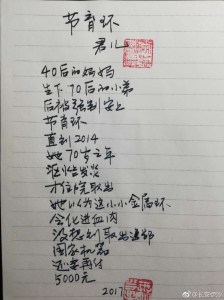 节育环
君儿
40后的妈妈
生下70后的小弟
后被强制安上
节育环
直到2014
她70岁之年
才住院取出
她以为这小小金属环
会化进血肉
没想到取出这部
国家机器
还要再付
5000元
2017